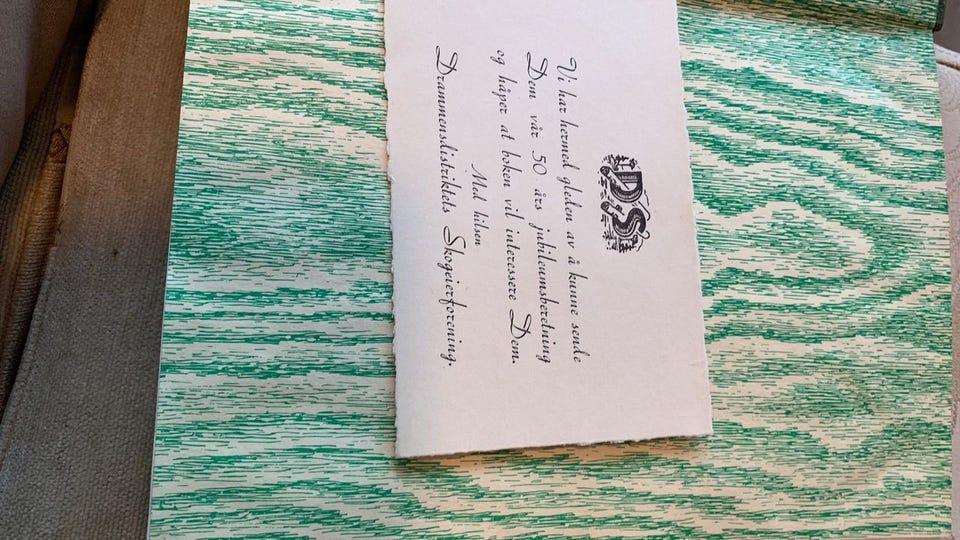 DS
Vi har hermed gleden av å kunne sende
Dem vår 50 års jubileumsberetning
og håper at boken vil interessere Dem.
Med hilsen
Drammensdistriktets Skogeierforening.